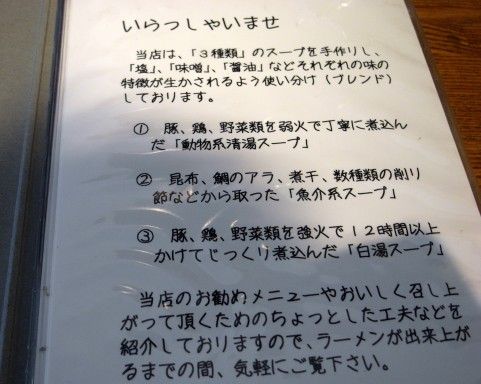 いらっしゃいませ
当店は、「3種類」のスープを手作りし、
「塩」、「味噌」、「醤油」などそれぞれの味の
特徴が生かされるよう使い分け(ブレンド)
しております。
① 豚、鶏、野菜類を弱火で丁寧に煮込ん
だ「動物系清湯スープ」
② 昆布、鯛のアラ、煮干、数種類の削り
節などから取った「魚介系スープ」
③ 豚、鶏、野菜類を強火で12時間以上
かけてじっくり煮込んだ「白湯スープ」
当店のお勧めメニューやおいしく召し上
がって頂くためのちょっとした工夫などを
紹介しておりますので、ラーメンが出来上が
るまでの間、気軽にご覧下さい。